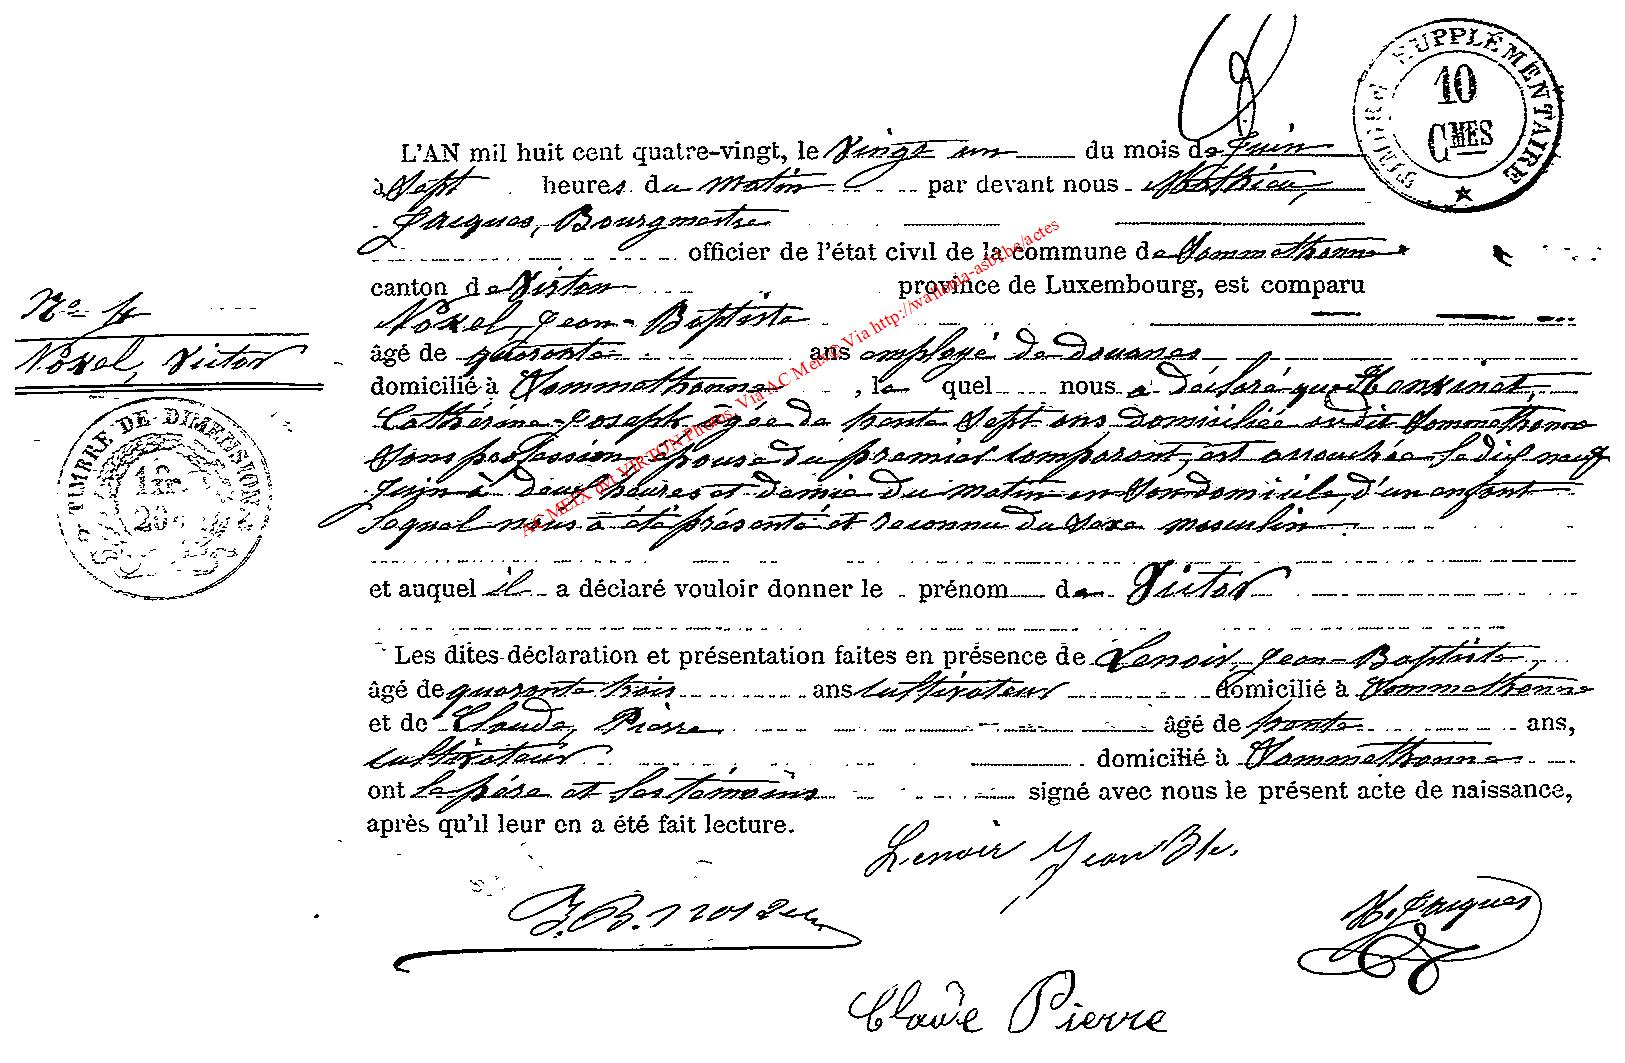 TIMBRE SUPPLÉMENTAIRE
10
CMES
L'AN mil huit cent quatre-vingt, le Vingt un du mois de Juin
à Sept heures du matin par devant nous Mathieu,
Jacques, Bourgmestre
officier de l'état civil de la commune de Sommethonne
canton de Virton province de Luxembourg, est comparu
No 4
Noxel, Jean-Baptiste
Noxel, Victor
âgé de quarante ans employé de douanes
domicilié à Sommethonne, le quel nous a déclaré que
Cathérine-Joseph âgée de trente Sept ans domiciliée audit Sommethonne
Sans profession épouse du premier comparant, est accouchée le dix neuf
Juin à deux heures et demie du matin en Son domicile, d'un enfant
lequel nous a été présenté et reconnu du Sexe masculin
TIMBRE DE DIMENSION
1 fr.
20
et auquel il a déclaré vouloir donner le prénom de Victor
Les dites déclaration et présentation faites en présence de Lenoir, Jean-Baptiste,
âgé de quarante trois ans cultivateur domicilié à Sommethonne
et de Claude, Pierre âgé de trente ans,
cultivateur domicilié à Sommethonne
ont le père et les témoins signé avec nous le présent acte de naissance,
après qu'il leur en a été fait lecture.
Lenoir Jean Bte.
J.B.
M. Jacques
Claude Pierre
AC MEIX dvt VIRTON Photos. Via AC Meix & Via http://wallonia-asbl.be/actes